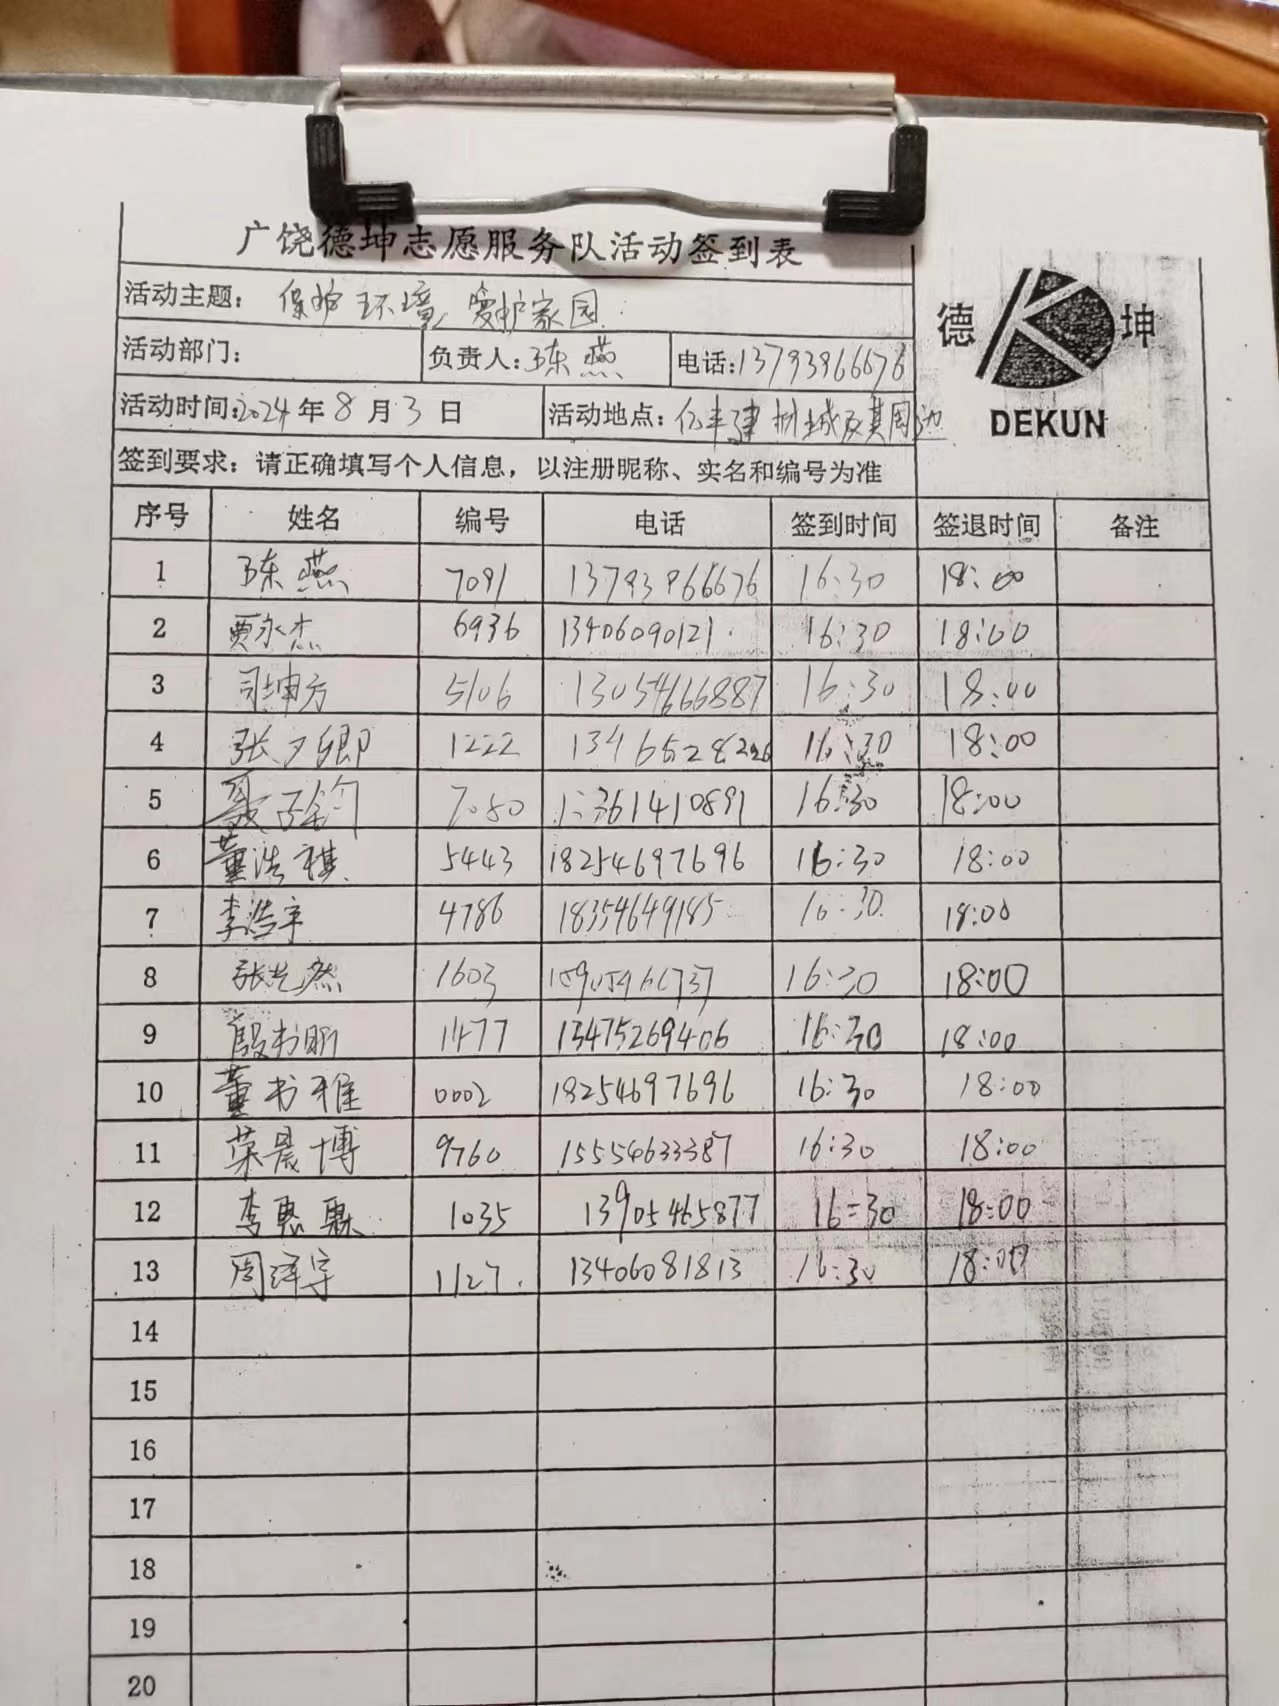 广饶德坤志愿服务队活动签到表
活动主题： 保护环境，爱护家园
德 坤
DEKUN
活动部门： 负责人：陈燕 电话：13793966676
活动时间：2024年8月3日 活动地点：亿丰建材城及其周边
签到要求：请正确填写个人信息，以注册昵称、实名和编号为准
序号 姓名 编号 电话 签到时间 签退时间 备注
1 陈燕 7091 13793966676 16:30 18:00
2 贾永杰 6936 13406090121 16:30 18:00
3 司坤方 5106 13054666887 16:30 18:00
4 张夕卿 1222 13465282226 16:30 18:00
5 7080 16:30 18:00
6 董浩祺 5443 18254697696 16:30 18:00
7 李浩宇 4786 18354649185 16:30 18:00
8 张艺然 1603 16:30 18:00
9 殷书昕 1477 13475269406 16:30 18:00
10 董书雅 0002 18254697696 16:30 18:00
11 荣晨博 9760 15554633387 16:30 18:00
12 李惠霖 1035 13905465877 16:30 18:00
13 周泽宇 1127. 13406081813 16:30 18:00
14
15
16
17
18
19
20